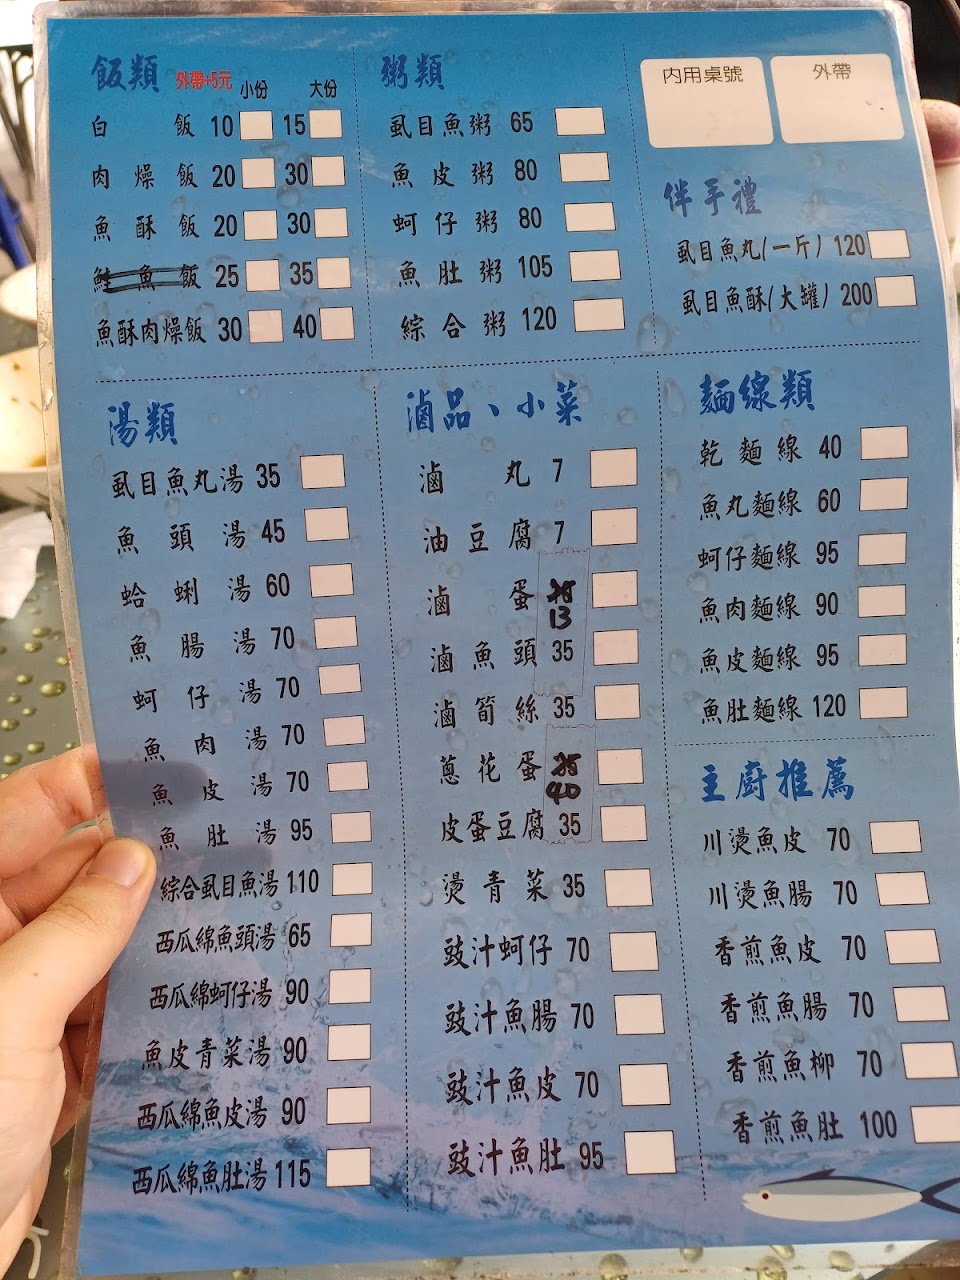 飯類 外帶+5元 小份 大份
白飯 10 15
肉燥飯 20 30
魚酥飯 20 30
鮭魚飯 25 35
魚酥肉燥飯 30 40
粥類
虱目魚粥 65
魚皮粥 80
蚵仔粥 80
魚肚粥 105
綜合粥 120
內用桌號 外帶
伴手禮
虱目魚丸(一斤) 120
虱目魚酥(大罐) 200
湯類
虱目魚丸湯 35
魚頭湯 45
蛤蜊湯 60
魚腸湯 70
蚵仔湯 70
魚肉湯 70
魚皮湯 70
魚肚湯 95
綜合虱目魚湯 110
西瓜綿魚頭湯 65
西瓜綿蚵仔湯 90
魚皮青菜湯 90
西瓜綿魚皮湯 90
西瓜綿魚肚湯 115
滷品、小菜
滷丸 7
油豆腐 7
滷蛋 13
滷魚頭 35
滷筍絲 35
蔥花蛋 40
皮蛋豆腐 35
燙青菜 35
豉汁蚵仔 70
豉汁魚腸 70
豉汁魚皮 70
豉汁魚肚 95
麵線類
乾麵線 40
魚丸麵線 60
蚵仔麵線 95
魚肉麵線 90
魚皮麵線 95
魚肚麵線 120
主廚推薦
川燙魚皮 70
川燙魚腸 70
香煎魚皮 70
香煎魚腸 70
香煎魚柳 70
香煎魚肚 100